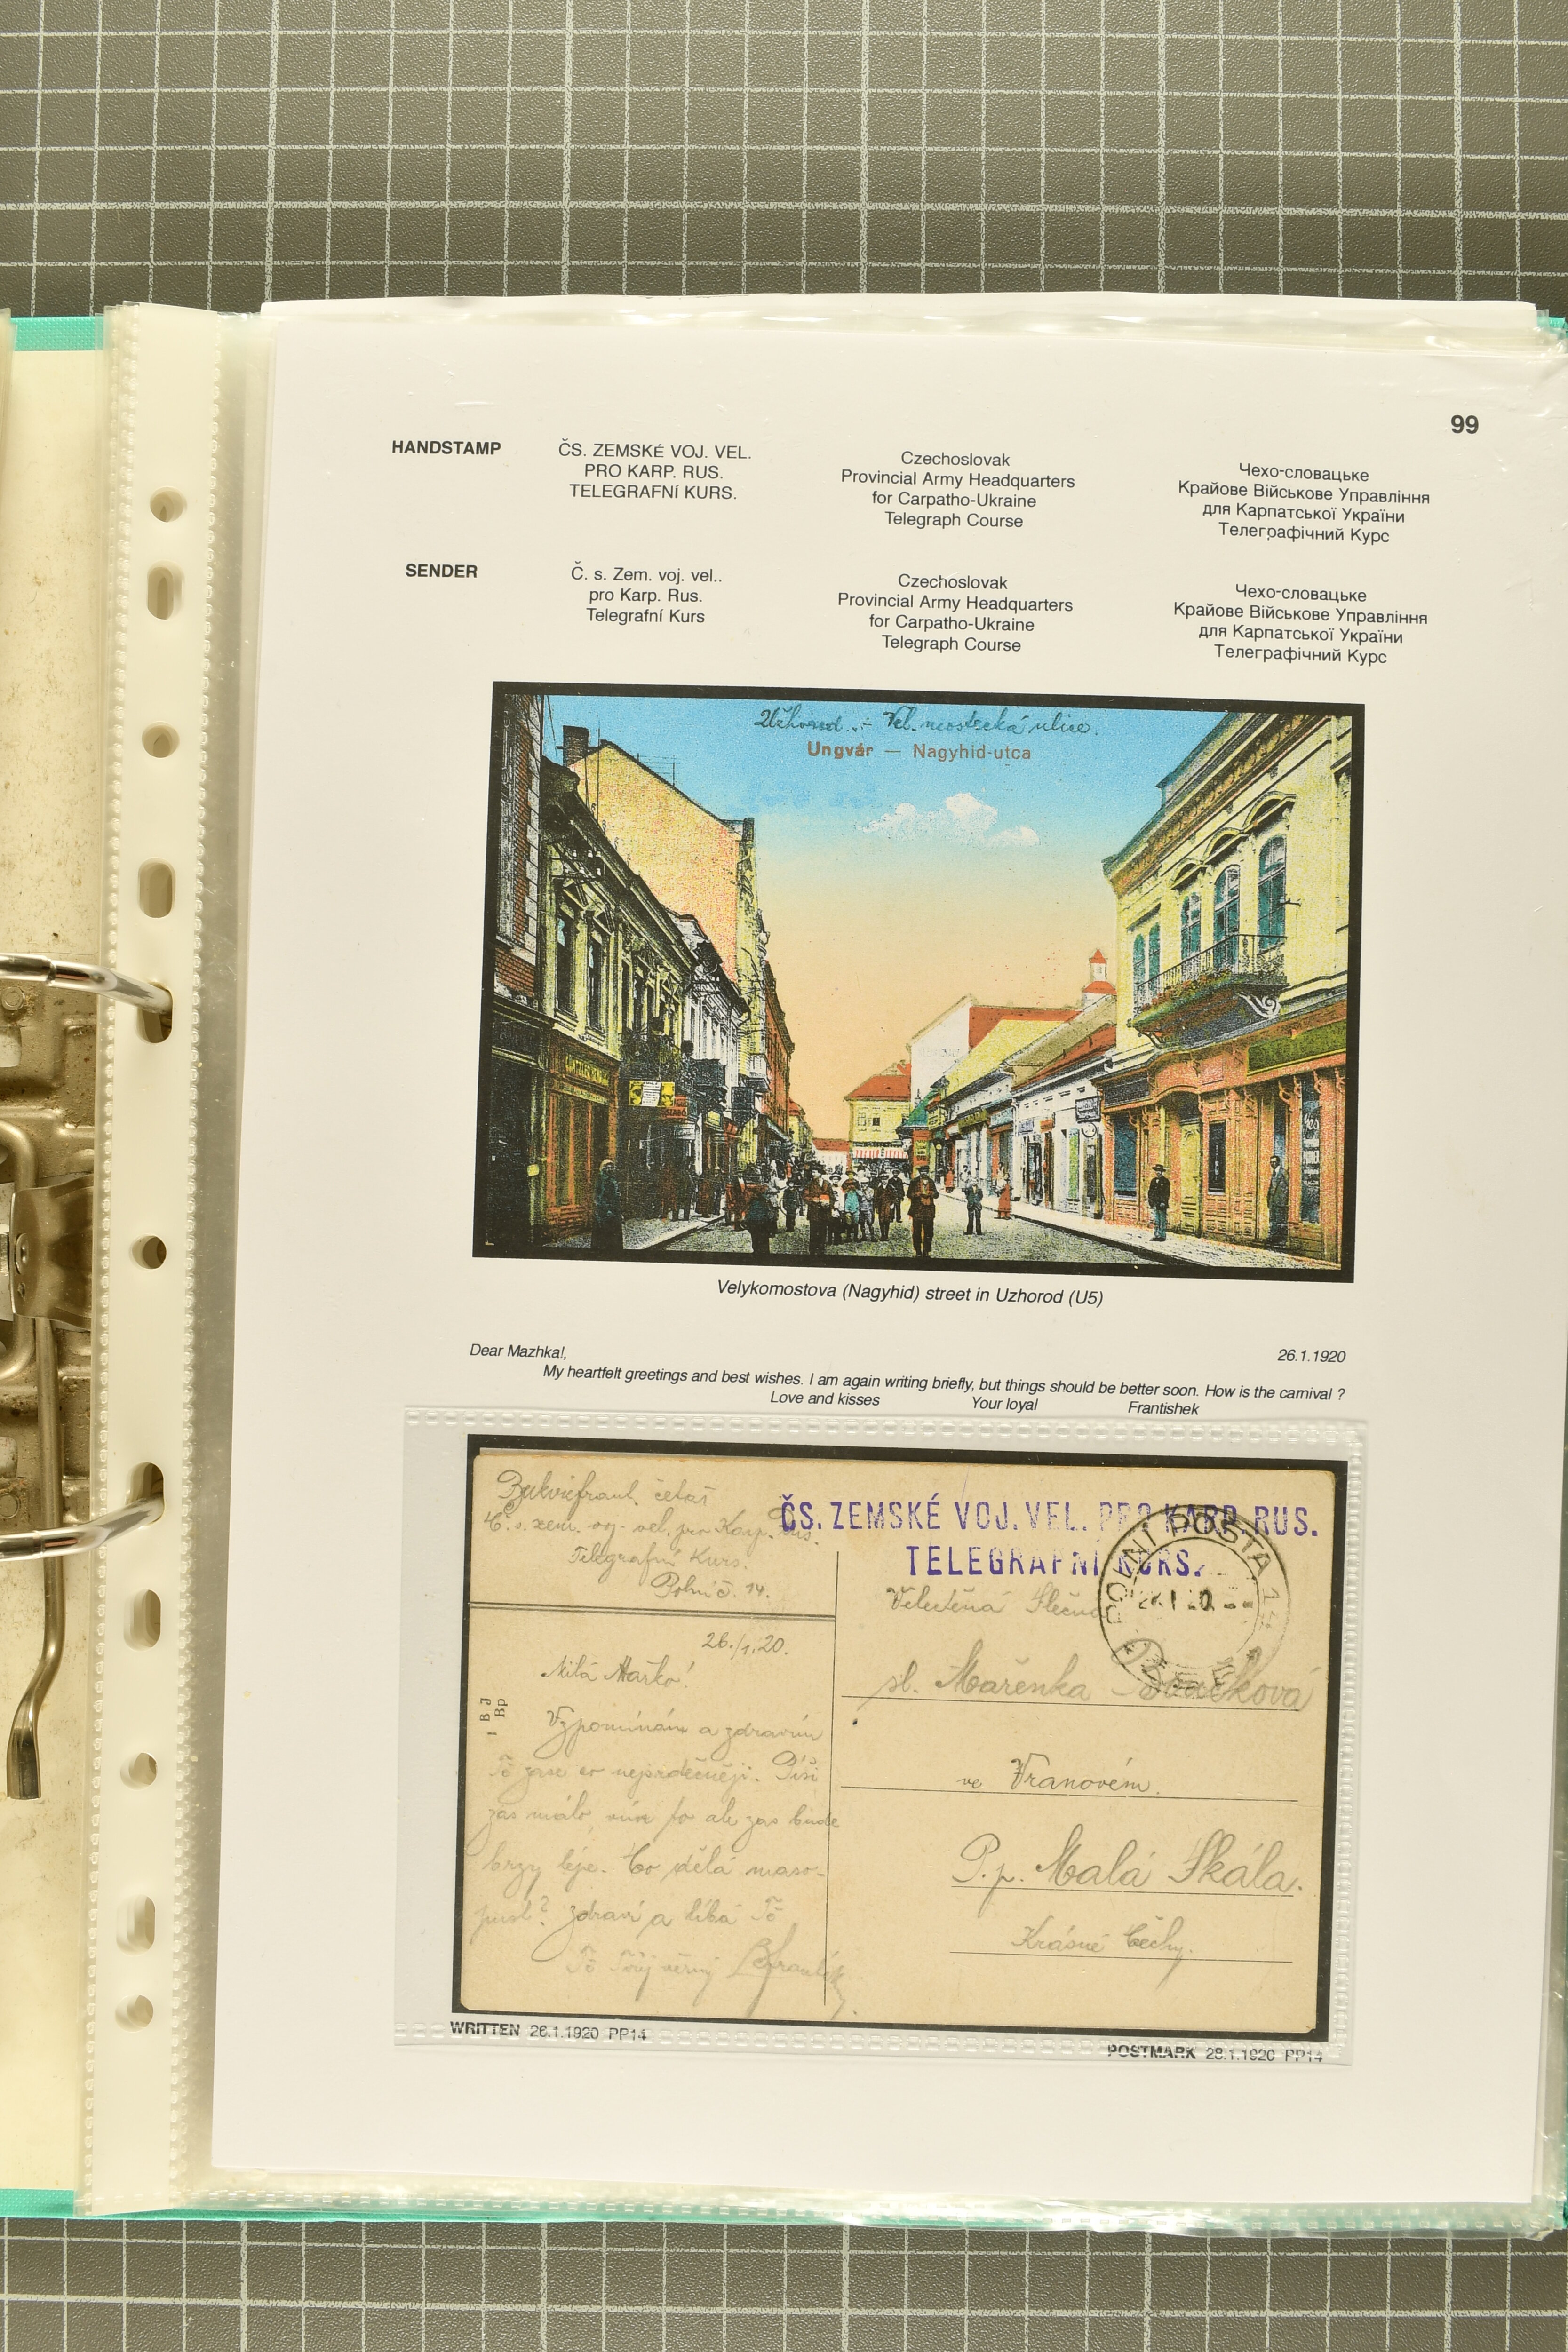 99
HANDSTAMP
ČS. ZEMSKÉ VOJ. VEL.
PRO KARP. RUS.
TELEGRAFNÍ KURS.
Czechoslovak
Provincial Army Headquarters
for Carpatho-Ukraine
Telegraph Course
Чехо-словацьке
Крайове Військове Управління
для Карпатської України
Телеграфічний Курс
SENDER
Č. s. Zem. voj. vel..
pro Karp. Rus.
Telegrafní Kurs
Czechoslovak
Provincial Army Headquarters
for Carpatho-Ukraine
Telegraph Course
Чехо-словацьке
Крайове Військове Управління
для Карпатської України
Телеграфічний Курс
Užhorod.- Vel. mostecká ulice.
Ungvár — Nagyhid-utca
SZABÓ
Velykomostova (Nagyhid) street in Uzhorod (U5)
Dear Mazhka!,
26.1.1920
My heartfelt greetings and best wishes. I am again writing briefly, but things should be better soon. How is the carnival ?
Love and kisses Your loyal Frantishek
četař
Č. s. zem. voj. vel. pro Karp. Rus.
Telegrafní Kurs.
Polní č. 14.
ČS. ZEMSKÉ VOJ. VEL. PRO KARP. RUS.
TELEGRAFNÍ KURS.
POLNÍ POŠTA 14
26./1.20.
Milá Mařko!
Vzpomínám a zdravím
Tě zase co nejsrdečněji. Píši
zas málo, ale zas bude
brzy lépe. Co dělá maso-
pust? Zdraví a líbá Tě
Tvůj věrný
Velectěná Slečna
sl. Mařenka
ve Vranovém.
P.p. Malá Skála.
Krásné Čechy.
WRITTEN 26.1.1920 PP14
POSTMARK 28.1.1920 PP14